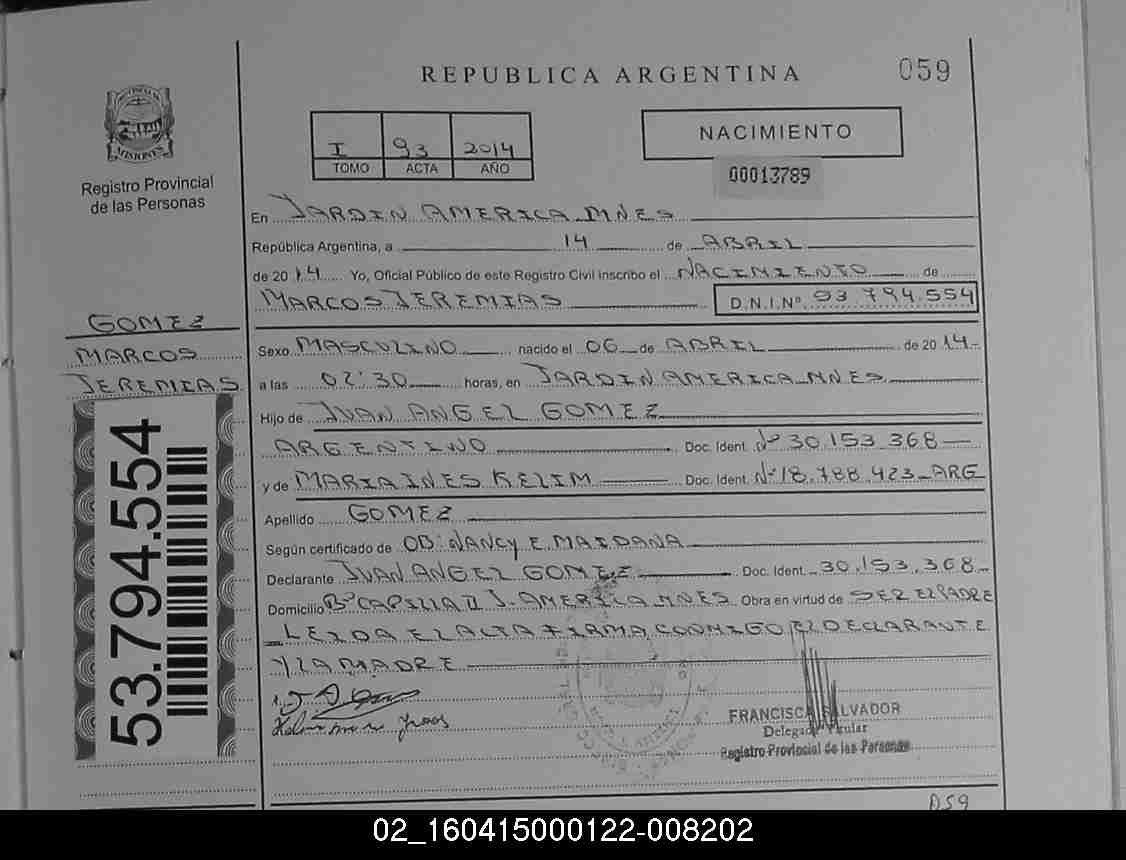 REPUBLICA ARGENTINA
059
MISIONES
Registro Provincial
de las Personas
I 93 2014
TOMO ACTA AÑO
NACIMIENTO
00013789
En JARDIN AMERICA MNES
República Argentina, a 14 de ABRIL
de 2014 Yo, Oficial Público de este Registro Civil inscribo el NACIMIENTO de
MARCOS JEREMIAS D.N.I.Nº 93.794.554
GOMEZ
MARCOS
JEREMIAS
53.794.554
Sexo MASCULINO nacido el 06 de ABRIL de 2014
a las 02:30 horas, en JARDIN AMERICA MNES
Hijo de JUAN ANGEL GOMEZ
ARGENTINO Doc. Ident. Nº 30.153.368
y de MARIA INES KELIM Doc. Ident. Nº 18.788.423 ARG
Apellido GOMEZ
Según certificado de OB: NANCY E MAIDANA
Declarante JUAN ANGEL GOMEZ Doc. Ident. 30.153.368
Domicilio Bº CAPILLA II J. AMERICA MNES Obra en virtud de SER EL PADRE
LEIDA EL ACTA FIRMA CONMIGO EL DECLARANTE
Y LA MADRE
FRANCISCA SALVADOR
Delegada Titular
Registro Provincial de las Personas
059
02_160415000122-008202